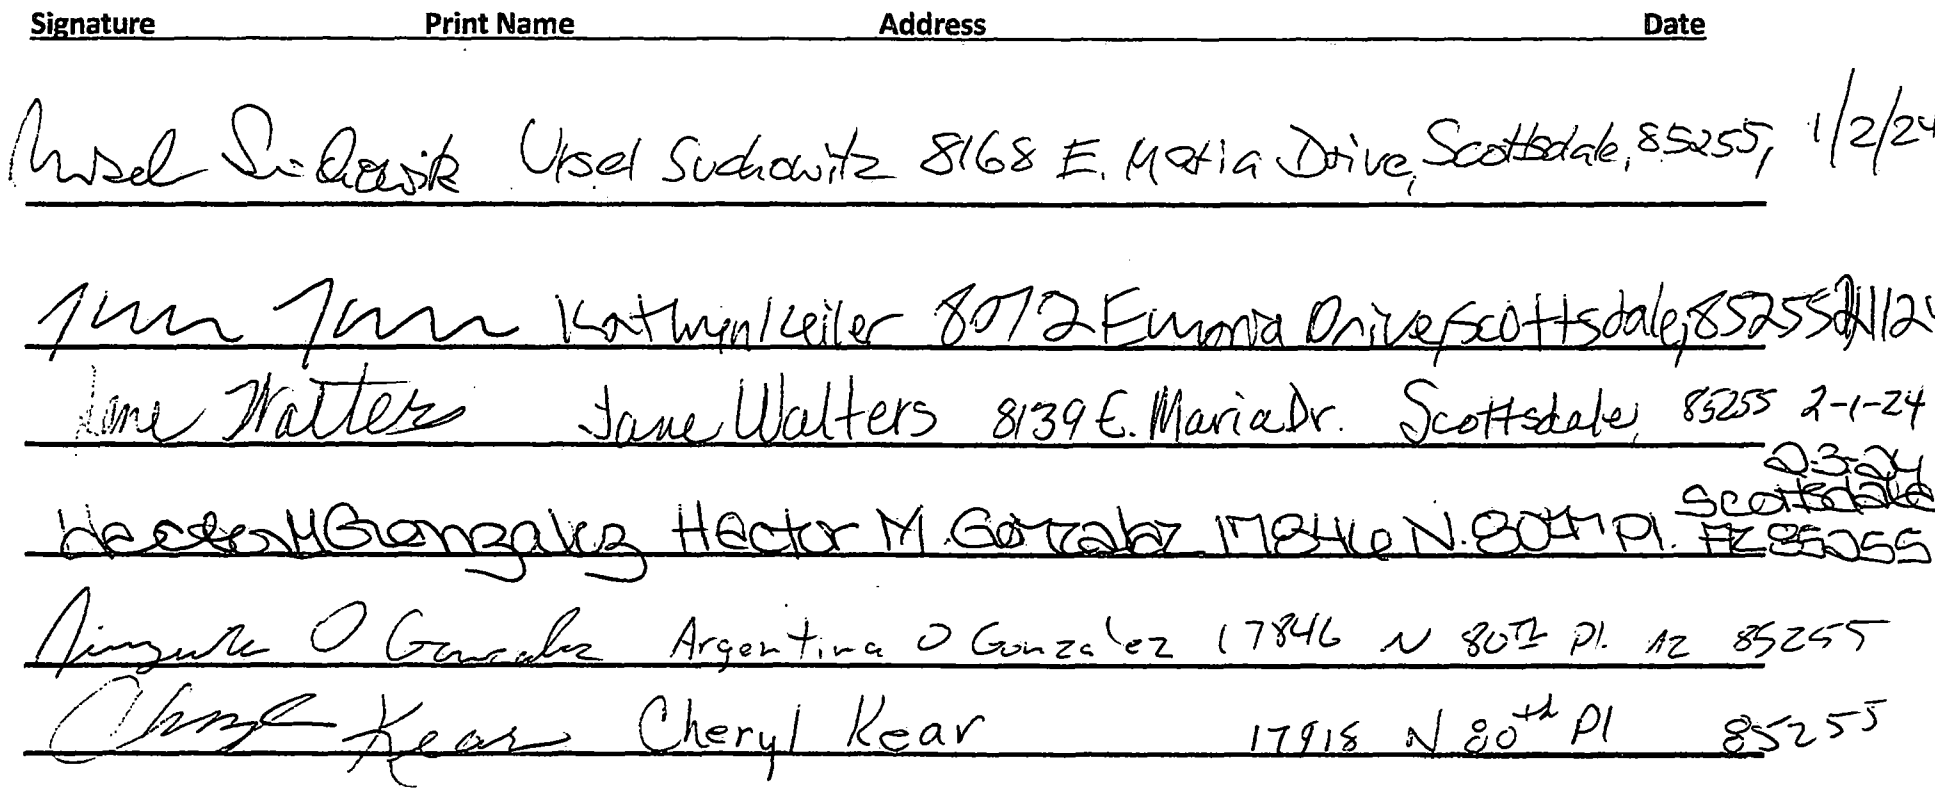 Signature Print Name Address Date
Ursel Suchowitz Ursel Suchowitz 8168 E. Maria Drive, Scottsdale, 85255, 1/2/24
Kathryn Keiler 8072 E Maria Drive, Scottsdale, 85255
Jane Walters Jane Walters 8139 E. Maria Dr. Scottsdale, 85255 2-1-24
2-3-24
Scottsdale
Hector M Gonzalez Hector M. Gonzalez 17846 N. 80th Pl. AZ 85255
O Gonzalez Argentina O Gonzalez 17846 N 80th Pl. AZ 85255
Cheryl Kear Cheryl Kear 17918 N 80th Pl 85255